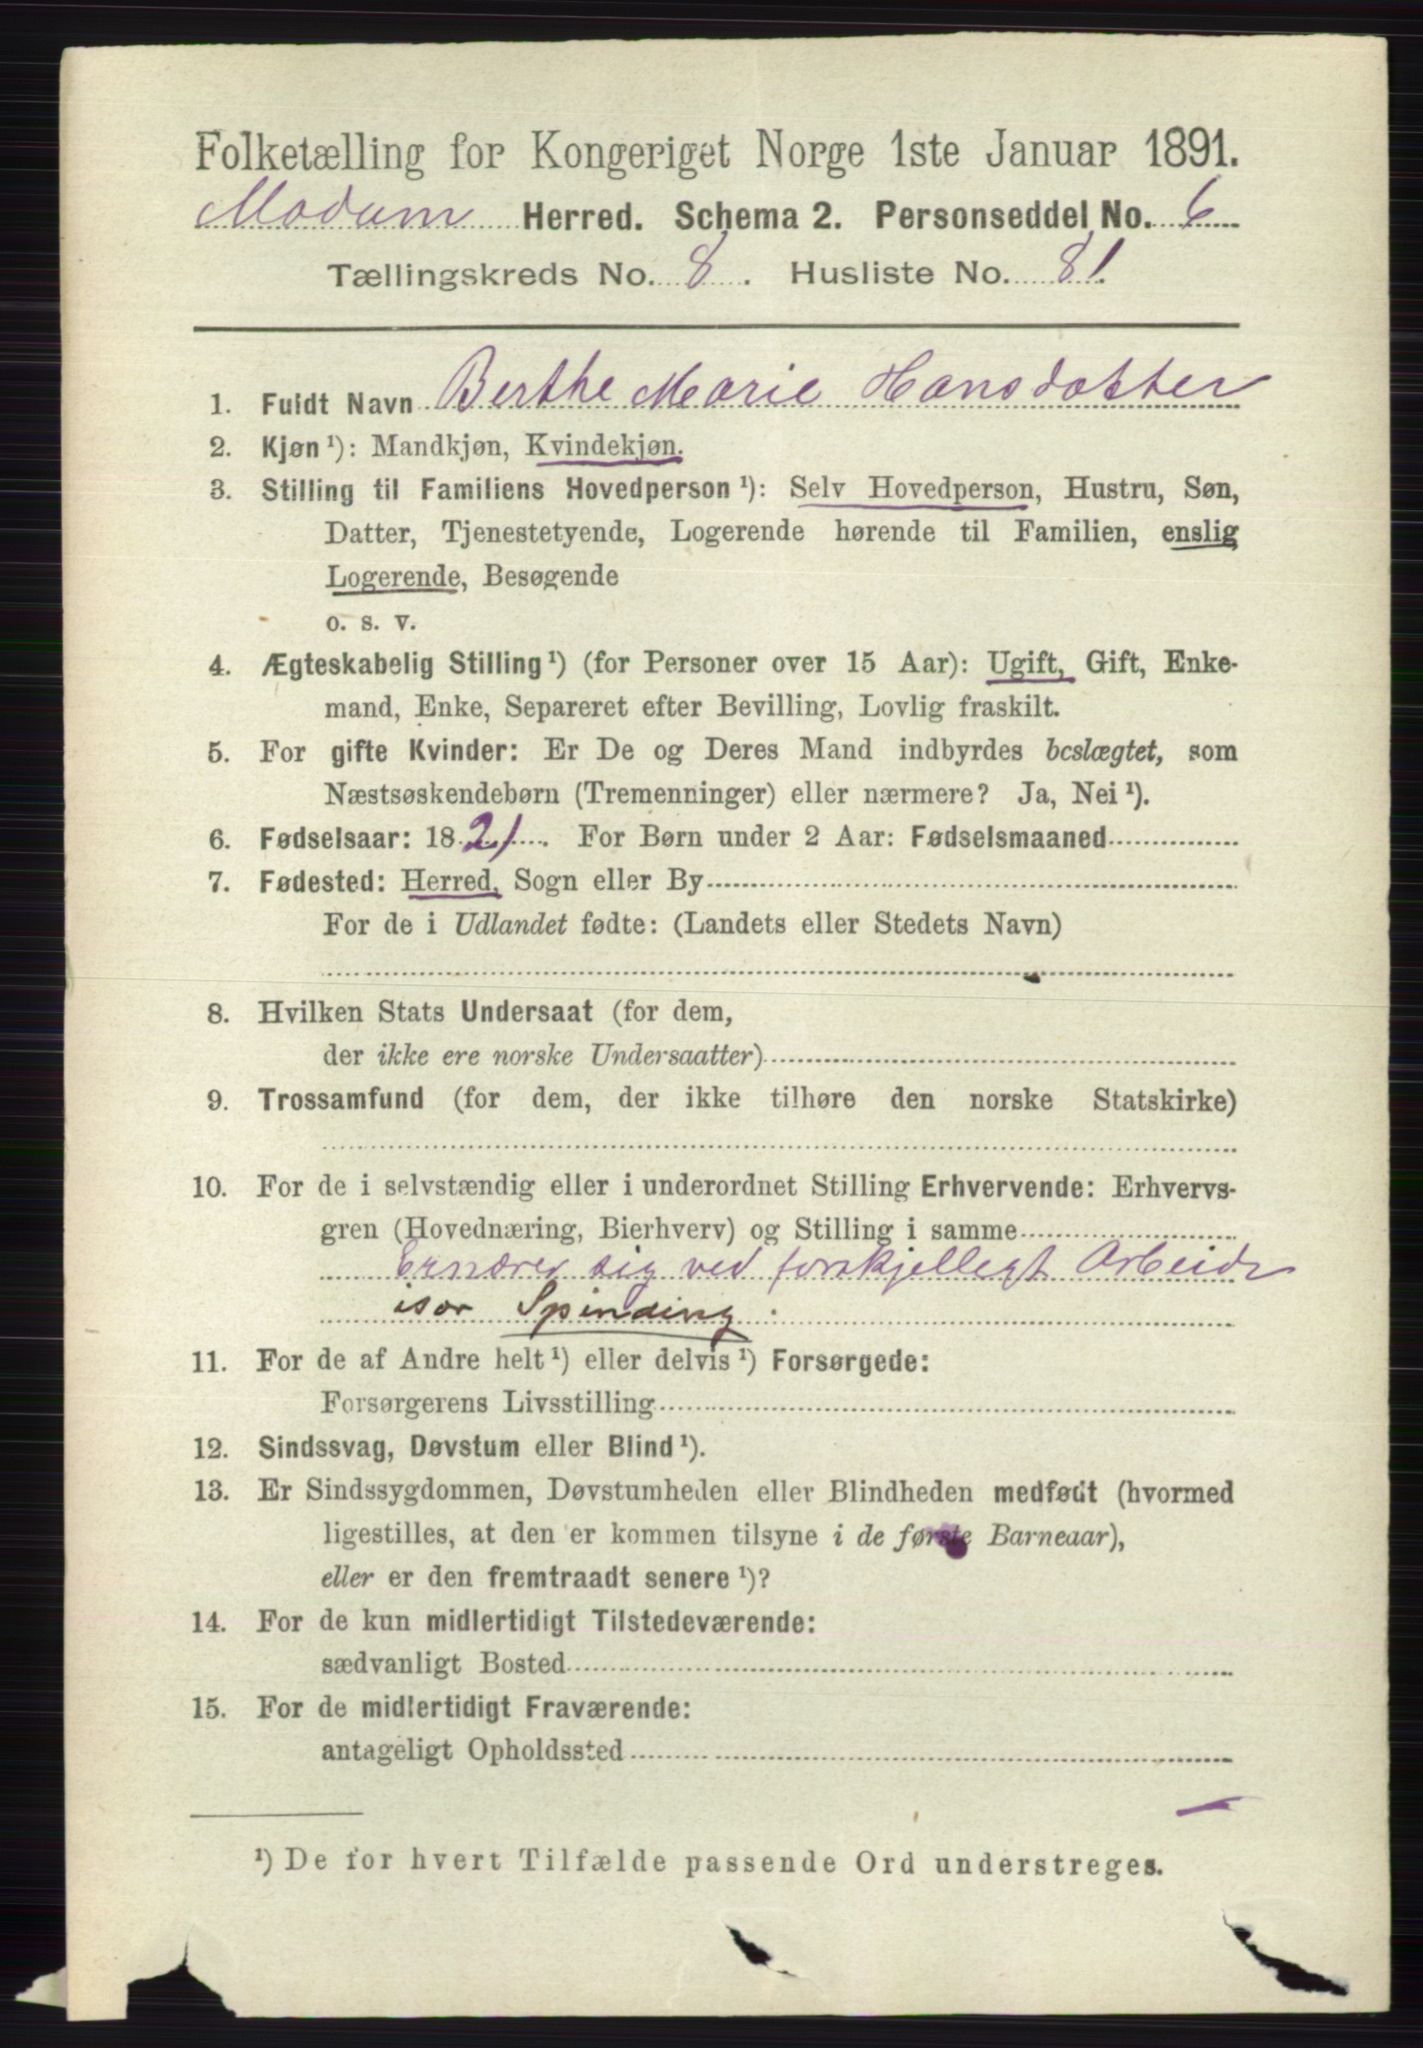 Folketælling for Kongeriget Norge 1ste Januar 1891.
Modum Herred. Schema 2. Personseddel No. 6
Tællingskreds No. 8. Husliste No. 81.
1. Fuldt Navn Berthe Marie Hansdatter
2. Kjøn ¹): Mandkjøn, Kvindekjøn.
3. Stilling til Familiens Hovedperson ¹): Selv Hovedperson, Hustru, Søn,
Datter, Tjenestetyende, Logerende hørende til Familien, enslig
Logerende, Besøgende
o. s. v.
4. Ægteskabelig Stilling ¹) (for Personer over 15 Aar): Ugift, Gift, Enke-
mand, Enke, Separeret efter Bevilling, Lovlig fraskilt.
5. For gifte Kvinder: Er De og Deres Mand indbyrdes beslægtet, som
Næstsøskendebørn (Tremenninger) eller nærmere? Ja, Nei ¹).
6. Fødselsaar: 1821. For Børn under 2 Aar: Fødselsmaaned
7. Fødested: Herred, Sogn eller By
For de i Udlandet fødte: (Landets eller Stedets Navn)
8. Hvilken Stats Undersaat (for dem,
der ikke ere norske Undersaatter)
9. Trossamfund (for dem, der ikke tilhøre den norske Statskirke)
10. For de i selvstændig eller i underordnet Stilling Erhvervende: Erhvervs-
gren (Hovednæring, Bierhverv) og Stilling i samme
Ernærer sig ved forskjelligt Arbeide
især Spinding.
11. For de af Andre helt ¹) eller delvis ¹) Forsørgede:
Forsørgerens Livsstilling
12. Sindssvag, Døvstum eller Blind ¹).
13. Er Sindssygdommen, Døvstumheden eller Blindheden medfødt (hvormed
ligestilles, at den er kommen tilsyne i de første Barneaar),
eller er den fremtraadt senere ¹)?
14. For de kun midlertidigt Tilstedeværende:
sædvanligt Bosted
15. For de midlertidigt Fraværende:
antageligt Opholdssted
¹) De for hvert Tilfælde passende Ord understreges.